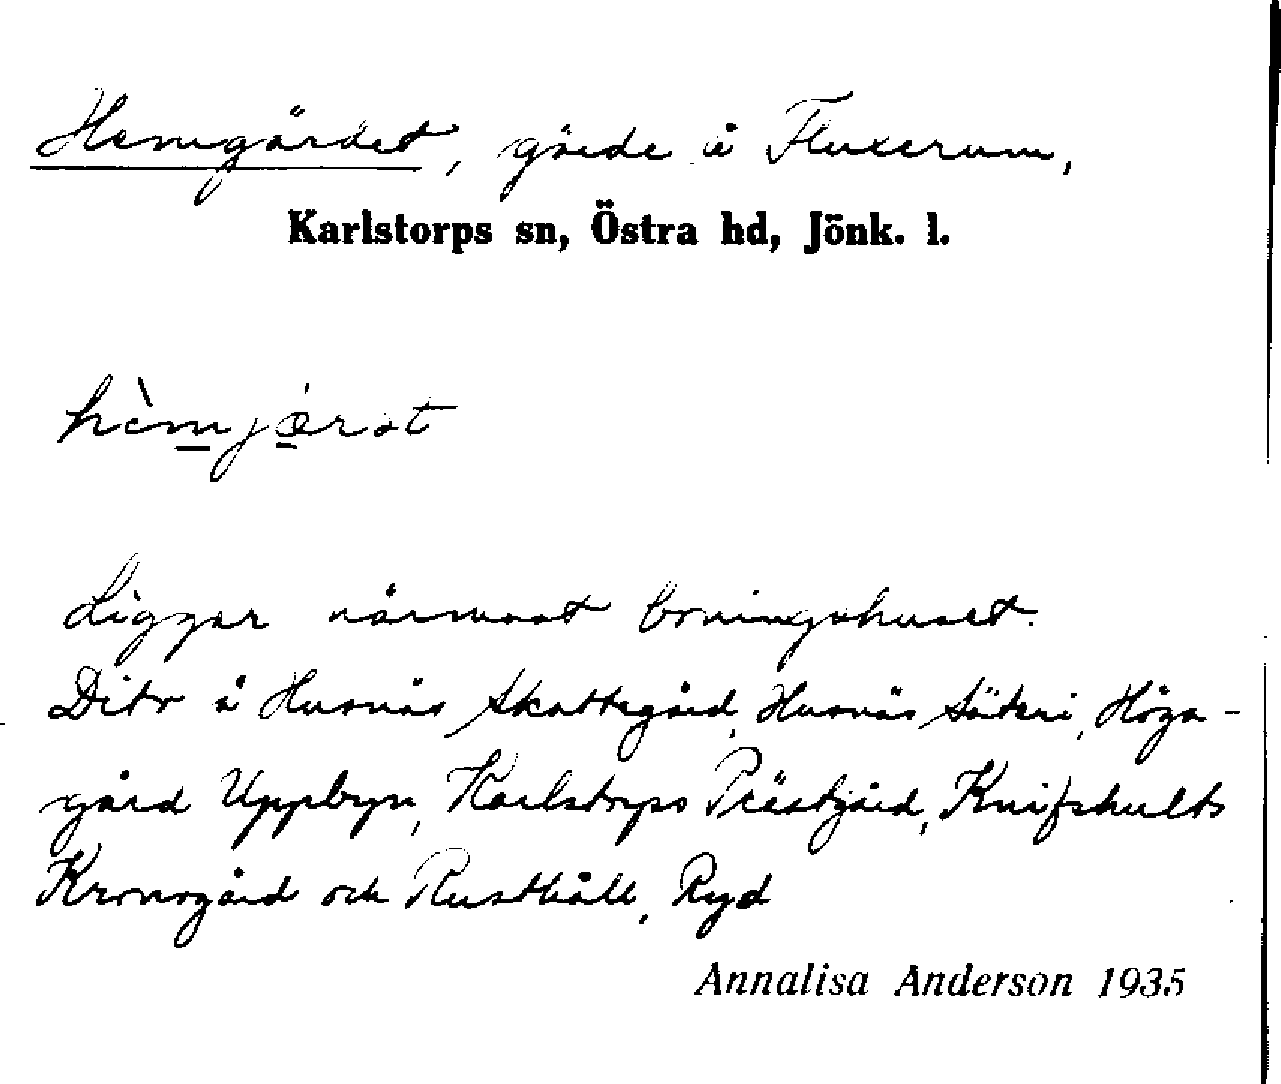 Hemgärdet, gärde å Fluxerum,
Karlstorps sn, Östra hd, Jönk. l.
hèmjæ̀rət
Ligger närmast boningshuset.
Dito å Husnäs Skattegård, Husnäs Säteri, Höga-
gård Uppbyn, Karlstorps Prästgård, Knifshults
Kronogård och Rusthåll, Ryd
Annalisa Anderson 1935